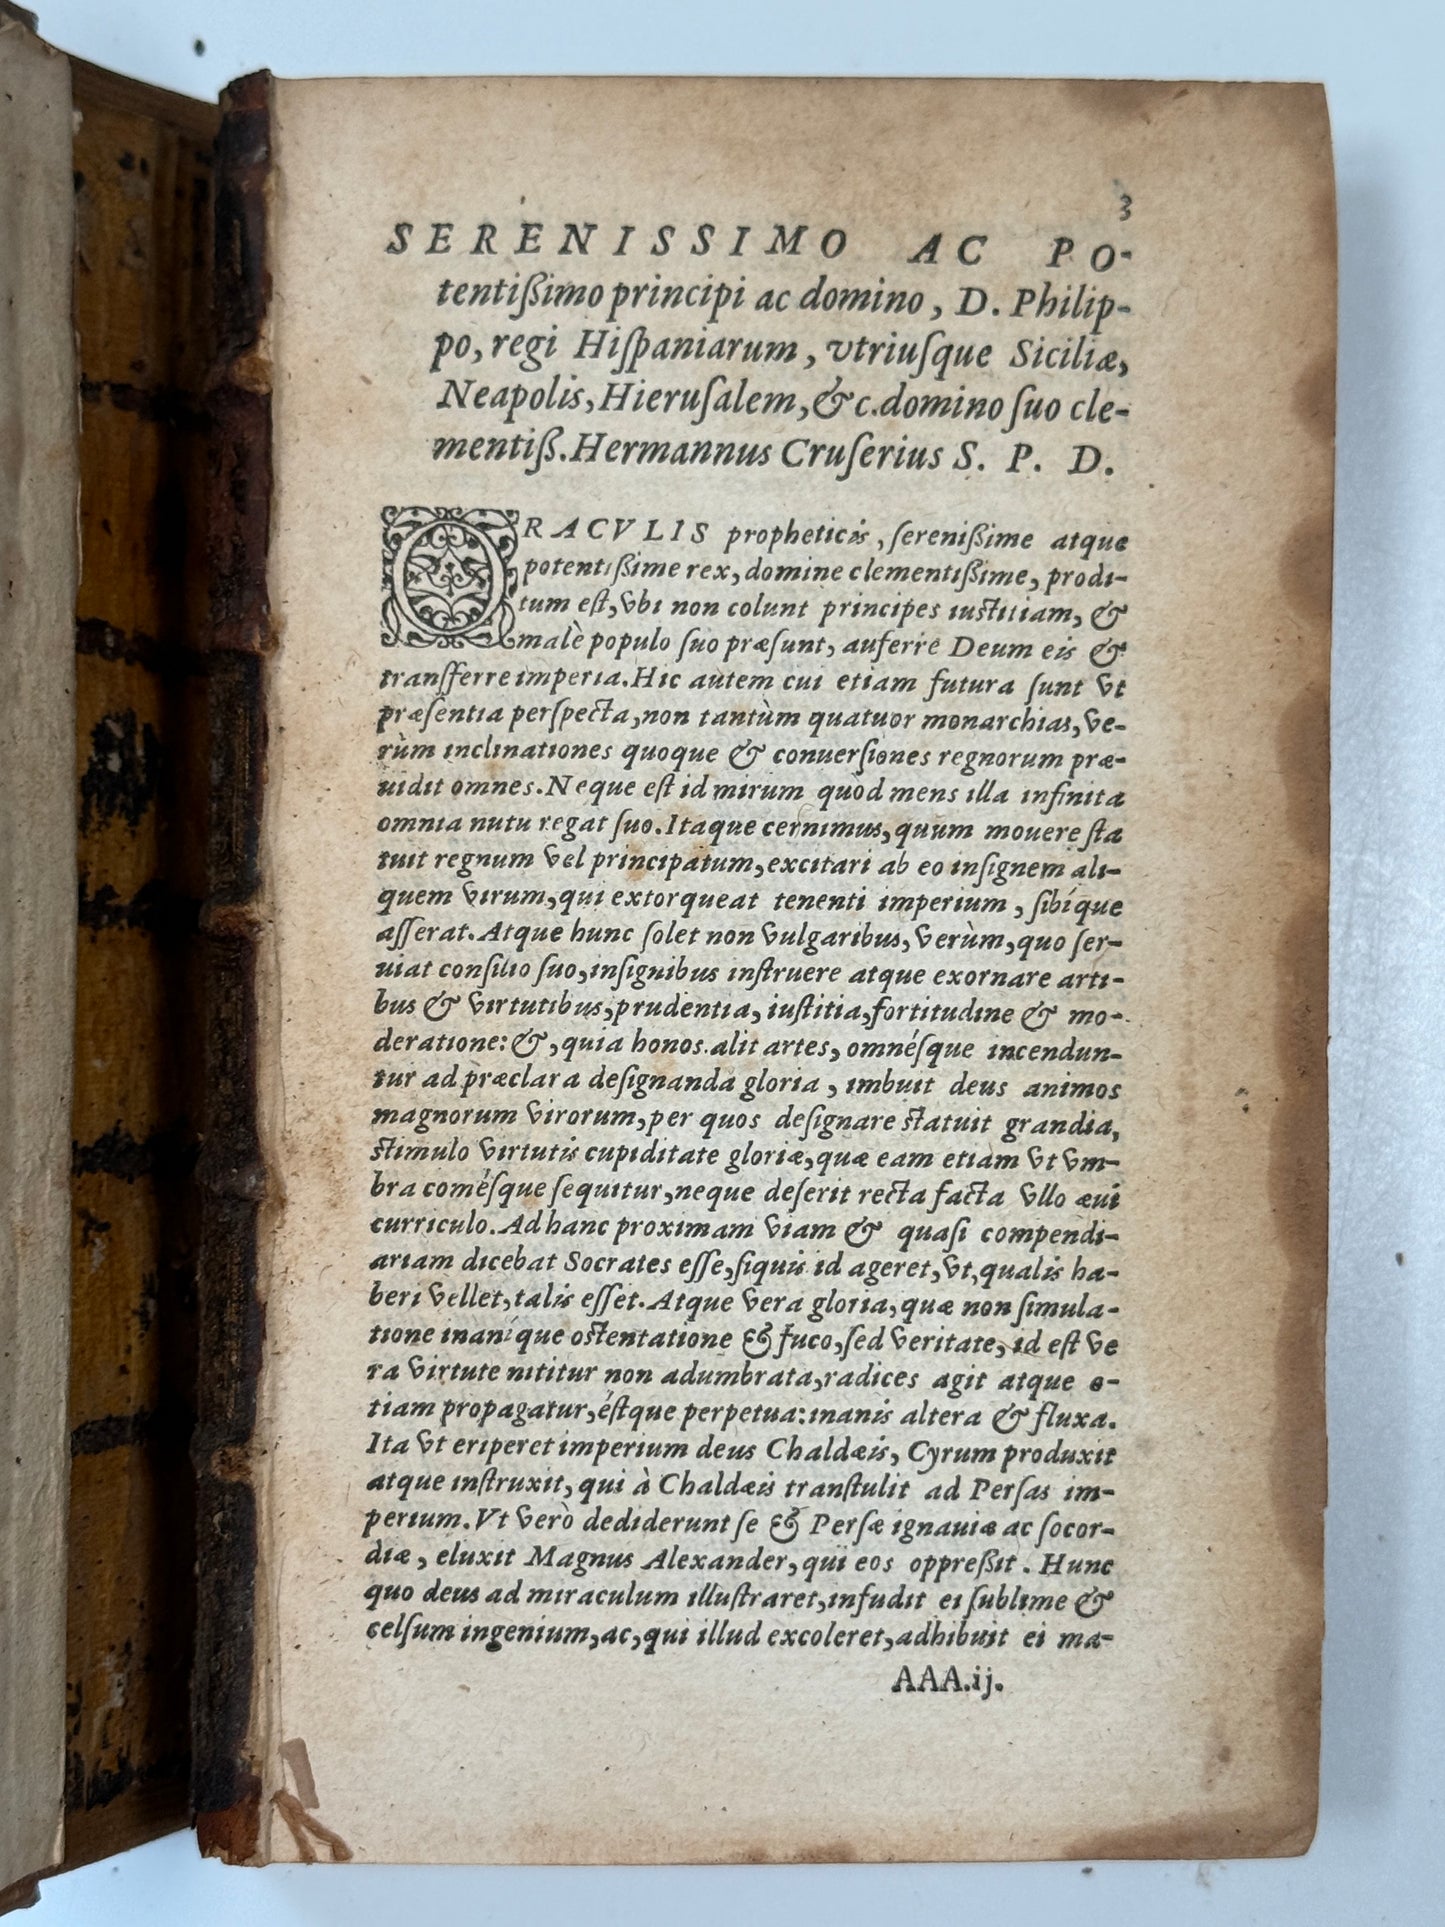 3
SERENISSIMO AC PO-
tentißimo principi ac domino, D. Philip-
po, regi Hiſpaniarum, vtriuſque Siciliæ,
Neapolis, Hieruſalem, &c. domino ſuo cle-
mentiß. Hermannus Cruſerius S. P. D.
ORACVLIS propheticis, ſerenißime atque
potentißime rex, domine clementißime, prodi-
tum eſt, vbi non colunt principes iuſtitiam, &
malè populo ſuo præſunt, auferre Deum eis &
tranſferre imperia. Hic autem cui etiam futura ſunt vt
præſentia perſpecta, non tantùm quatuor monarchias, ve-
rùm inclinationes quoque & conuerſiones regnorum præ-
uidit omnes. Neque eſt id mirum quòd mens illa infinita
omnia nutu regat ſuo. Itaque cernimus, quum mouere ſta
tuit regnum vel principatum, excitari ab eo inſignem ali-
quem virum, qui extorqueat tenenti imperium, ſibíque
aſſerat. Atque hunc ſolet non vulgaribus, verùm, quo ſer-
uiat conſilio ſuo, inſignibus inſtruere atque exornare arti-
bus & virtutibus, prudentia, iuſtitia, fortitudine & mo-
deratione: &, quia honos alit artes, omnéſque incendun-
tur ad præclara deſignanda gloria, imbuit deus animos
magnorum virorum, per quos deſignare ſtatuit grandia,
ſtimulo virtutis cupiditate gloriæ, quæ eam etiam vt vm-
bra coméſque ſequitur, neque deſerit recta facta vllo æui
curriculo. Ad hanc proximam viam & quaſi compendi-
ariam dicebat Socrates eſſe, ſiquis id ageret, vt, qualis ha-
beri vellet, talis eſſet. Atque vera gloria, quæ non ſimula-
tione inaníque oſtentatione & fuco, ſed veritate, id eſt ve
ra virtute nititur non adumbrata, radices agit atque e-
tiam propagatur, éſtque perpetua: inanis altera & fluxa.
Ita vt eriperet imperium deus Chaldæis, Cyrum produxit
atque inſtruxit, qui à Chaldæis tranſtulit ad Perſas im-
perium. Vt verò dediderunt ſe & Perſæ ignauiæ ac ſocor-
diæ, eluxit Magnus Alexander, qui eos oppreßit. Hunc
quo deus ad miraculum illuſtraret, infudit ei ſublime &
celſum ingenium, ac, qui illud excoleret, adhibuit ei ma-
AAA.ij.